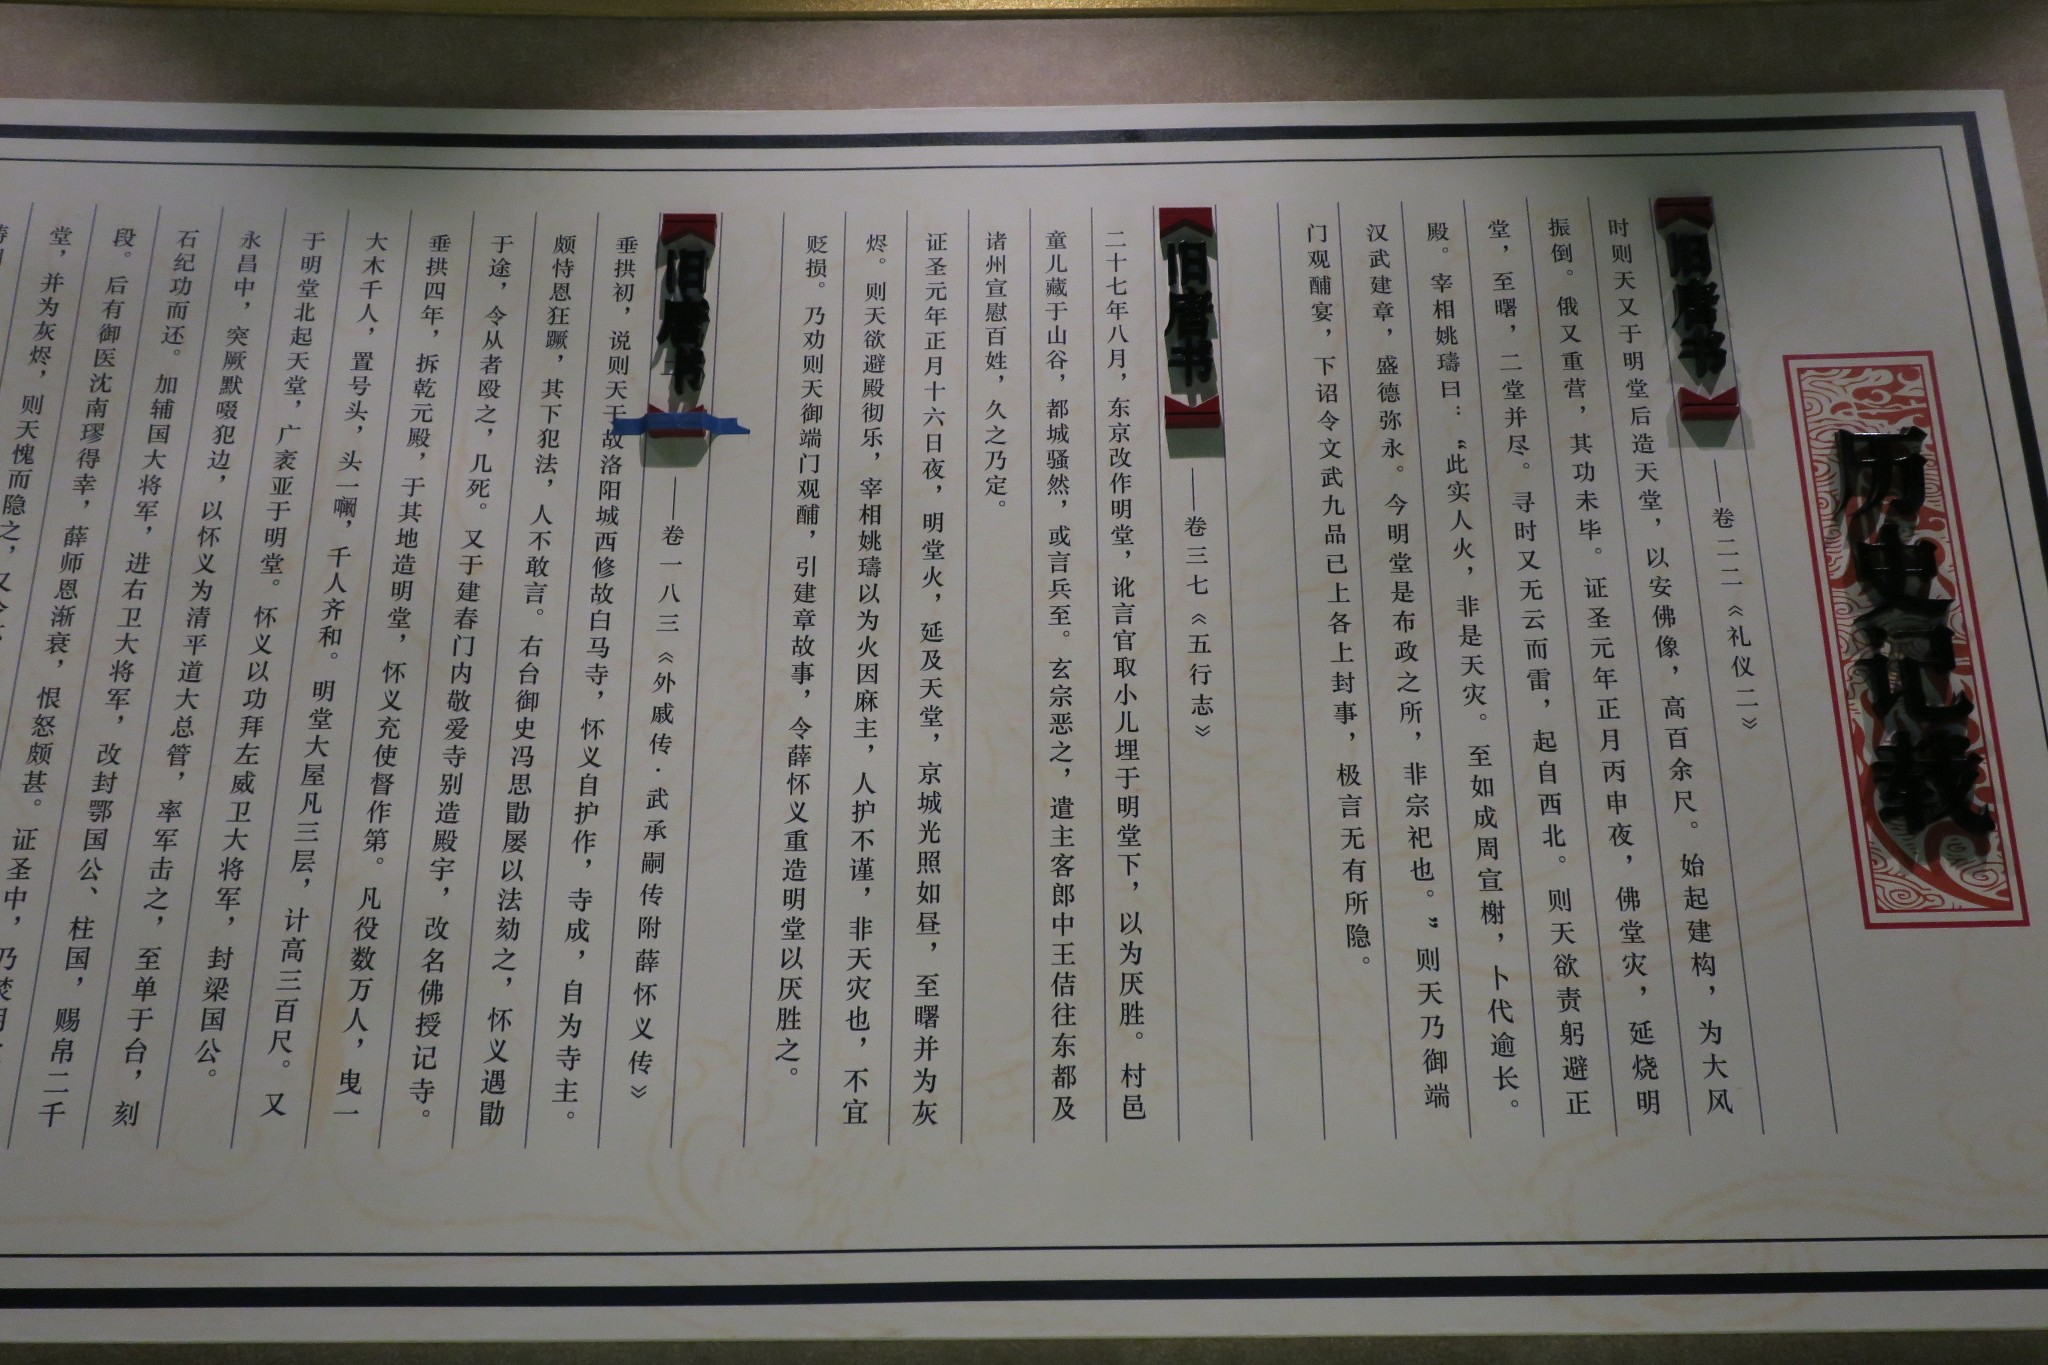 历史记载
旧唐书
——卷二二《礼仪二》
时则天又于明堂后造天堂，以安佛像，高百余尺。始起建构，为大风
振倒。俄又重营，其功未毕。证圣元年正月丙申夜，佛堂灾，延烧明
堂，至曙，二堂并尽。寻时又无云而雷，起自西北。则天欲责躬避正
殿。宰相姚璹曰：“此实人火，非是天灾。至如成周宣榭，卜代逾长。
汉武建章，盛德弥永。今明堂是布政之所，非宗祀也。”则天乃御端
门观酺宴，下诏令文武九品已上各上封事，极言无有所隐。
旧唐书
——卷三七《五行志》
二十七年八月，东京改作明堂，讹言官取小儿埋于明堂下，以为厌胜。村邑
童儿藏于山谷，都城骚然，或言兵至。玄宗恶之，遣主客郎中王佶往东都及
诸州宣慰百姓，久之乃定。
证圣元年正月十六日夜，明堂火，延及天堂，京城光照如昼，至曙并为灰
烬。则天欲避殿彻乐，宰相姚璹以为火因麻主，人护不谨，非天灾也，不宜
贬损。乃劝则天御端门观酺，引建章故事，令薛怀义重造明堂以厌胜之。
旧唐书
——卷一八三《外戚传·武承嗣传附薛怀义传》
垂拱初，说则天于故洛阳城西修故白马寺，怀义自护作，寺成，自为寺主。
颇恃恩狂蹶，其下犯法，人不敢言。右台御史冯思勖屡以法劾之，怀义遇勖
于途，令从者殴之，几死。又于建春门内敬爱寺别造殿宇，改名佛授记寺。
垂拱四年，拆乾元殿，于其地造明堂，怀义充使督作第。凡役数万人，曳一
大木千人，置号头，头一㘎，千人齐和。明堂大屋凡三层，计高三百尺。又
于明堂北起天堂，广袤亚于明堂。怀义以功拜左威卫大将军，封梁国公。
永昌中，突厥默啜犯边，以怀义为清平道大总管，率军击之，至单于台，刻
石纪功而还。加辅国大将军，进右卫大将军，改封鄂国公、柱国，赐帛二千
段。后有御医沈南璆得幸，薛师恩渐衰，恨怒颇甚。证圣中，乃焚明
堂，并为灰烬，则天愧而隐之，又